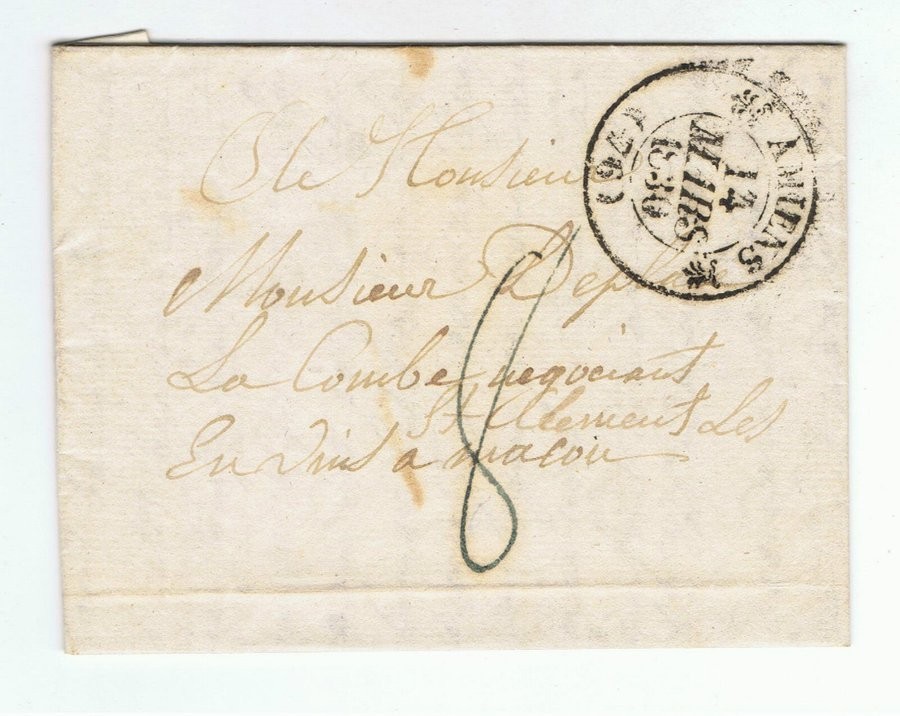 A Monsieur
Monsieur Depla
La Combe negociant
St Clement Les
En vins a macon
8
AMIENS
14
MARS
1830
(76)